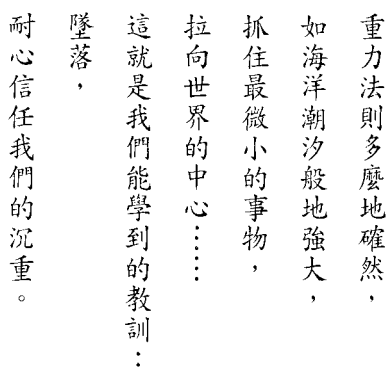 重力法則多麼地確然，
如海洋潮汐般地強大，
抓住最微小的事物，
拉向世界的中心……
這就是我們能學到的教訓：
墜落，
耐心信任我們的沉重。